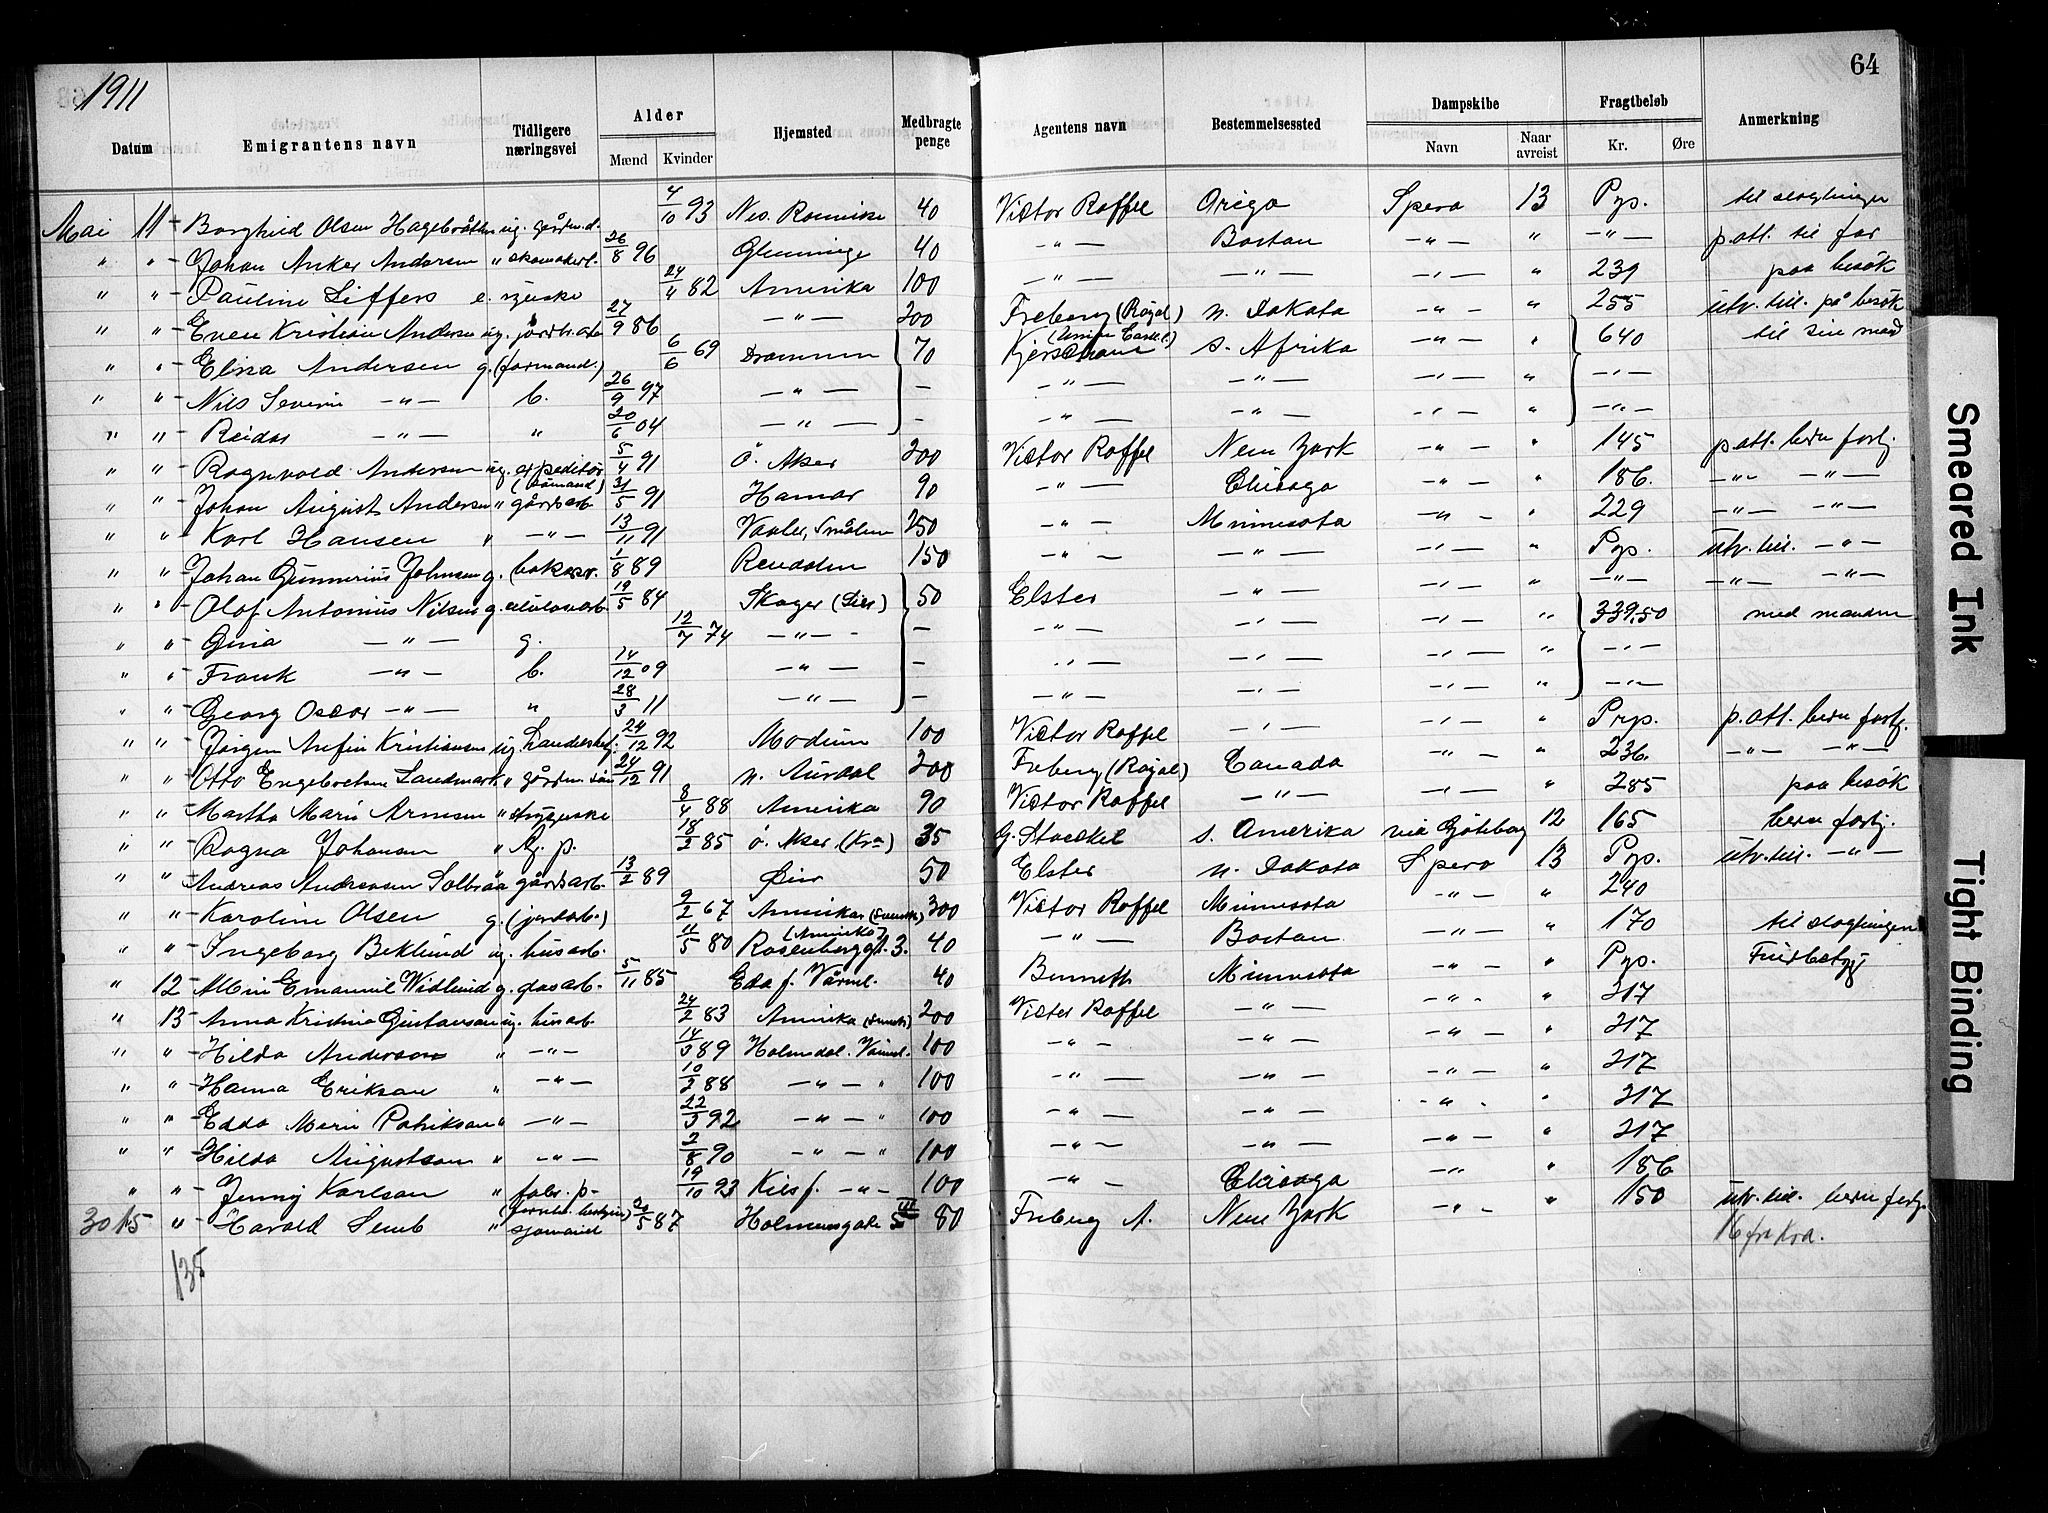 1911
64
Datum | Emigrantens navn | Tidligere næringsvei | Alder | Mænd | Kvinder | Hjemsted | Medbragte penge | Agentens navn | Bestemmelsessted | Dampskibe | Navn | Naar avreist | Fragtbeløb | Kr. | Øre | Anmerkning
Mai 11 - Borghild Olsen ug. gårdm.d. 4/10 93 Nes. Romerike 40 Victor Roffel Origo Spero 13 Pp. til slogtninger
" " - Johan Anker Andersen " skomakerl. 26/8 96 Glemminge 40 -"- Boston -"- " -"- p.att. til far
" " - Pauline Siffers e. syerske 24/4 82 Amerika 100 -"- -"- -"- " 239 paa besök
" " - Even Kristian Andersen ug. jordbr.arb 27/9 86 -"- 200 Freberg (Royal) n. Dakota -"- " 255 utv. till. på besök
" " - Elisa Andersen g. (formand.) 6/6 69 Drammen 70 (Union Castle) s. Afrika -"- " 640 til sin mand
" " - Nils Severin -"- b. 26/9 97 -"- - -"- -"- -"- " -"-
" " - Reidar -"- " 20/6 04 -"- - -"- -"- -"- " -"-
" " - Ragnvald Andersen ug. expeditör 5/4 91 Ö. Aker 200 Victor Roffel New York -"- " 145 p.att. herv. fortj.
" " - Johan August Andersen " (sömand) gårdsarb. 31/5 91 Hamar 90 -"- Chicago -"- " 186. -"- -"-
" " - Karl Hansen " -"- 13/11 91 Vaaler, Smålen 250 -"- Minnesota -"- " 229 -"- -"-
" " - Johan Gunnerius Johnsen g. 1/8 89 Rendalen 150 -"- -"- -"- " Pp. utv. till. -"-
" " - Olaf Antonius Nilsen g. 19/5 84 Skoger (Lier) 50 Elster -"- -"- " -"- -"- -"-
" " - Gina -"- g. 12/7 74 -"- - -"- -"- " 339.50 med manden
" " - Frank -"- b. 14/12 09 -"- - -"- -"- -"- " -"-
" " - Georg Oscar -"- " 28/3 11 -"- - -"- -"- -"- " -"-
" " - Jörgen Arefin Kristiansen ug. handelsbetj. 24/12 92 Modum 100 Victor Roffel -"- -"- " Prp. p.att. herv. fortj.
" " - Otto Engebretsen Sandmark " gårdm. sön 24/12 91 n. Aurdal 200 Freberg (Royal) Canada -"- " 236. -"- -"-
" " - Martha Marie Arnesen " strygerske 8/4 88 Amerika 90 Victor Roffel -"- -"- " 285 paa besök
" " - Ragna Johansen " tj. p. 18/2 85 ö. Aker (Kra) 35 G. Stoeckel s. Amerika via Göteborg 12 165 herv. fortj.
" " - Andreas Andreasen Solbråa gårdsarb. 13/2 89 Öier 50 Elster n. Dakota Spero 13 Pp. utv. till. -"-
" " - Karoline Olsen g. (jordarb.) 9/2 67 Amerika (svensk) 300 Victor Roffel Minnesota -"- " 240
" " - Ingeborg Beklund ug. husarb. 11/5 80 (Amerika) Rosenborggt. 3. 40 -"- Boston -"- " 170 til slogtningen
" 12 - Emanuel Widlund g. glasarb. 5/11 85 Eda f. Värml. 40 Bennett Minnesota -"- " Pp.
" 13 - Anna Kristina Gustavson ug. husarb. 24/2 83 Amerika (svensk) 200 Victor Roffel -"- -"- " 217
" " - Hilda Anderson " -"- 14/3 89 Holmedal. Värml. 100 -"- -"- -"- " 217
" " - Hanna Erikson " -"- 10/2 88 -"- " 100 -"- -"- -"- " 217
" " - Edda Maria " -"- 22/3 92 -"- " 100 -"- -"- -"- " 217
" " - Hilda Augustson " -"- 2/8 90 -"- " 100 -"- -"- -"- " 217
" " - Jenny Karlson " fabr. p. 19/10 93 Kils f. -"- 100 -"- Chicago -"- " 186
3015 " - Harald Semb " sjömand 20/5 87 Holmensgate 5 80 Freberg A. New York -"- " 150 utv. till. herv. fortj.
16 fra Kra.
135
Smeared Ink
Tight Binding